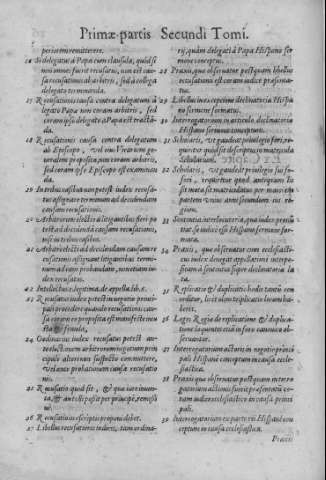 Primæ partis Secundi Tomi.
peri a me remittere.
16 Si delegatus à Papa cum clausula, quòd si
non omnes fuerit recusatus, non est cau-
sa recusationis ab arbitris, sed à collega
delegato terminanda.
17 Recusationis causa contra delegatum à
legato Papæ non coram arbitris, sed
coram ipso delegato à Papa est tractã-
da.
18 Recusationis causa contra delegatum
ab Episcopo, vel eius Vicario non ge-
sed coram ipso Episcopo est examinan
da.
19 In tribus casibus non potest iudex recusa-
tur assignare terminum ad decidendam
causam recusationis.
20 Arbitri electi à litigantibus
ta ad decidendã causam recusationis,
nisi in tribus casibus.
21 Arbitri electi ad decidendam causam re
cusationis assignant litigantibus termi-
num ad eam probandam, non etiam in-
dex recusatus.
22 Intellectus legitima, de appella. lib. 6.
23 Recusatus iudex potest in negotio princi-
pali procedere quando recusationis cau-
sa coram eo proposita est manifeste in-
& frivola.
24 Ordinarius iudex recusatus potest an-
te electionem arbitrorum causam prin
cipalem alteri non suspecto committere,
vel ante probatum causam recusatio
nis.
25 Recusatio quid sit, & qua iure inuen-
ta, & an tolli possit per principẽ, remisi
vè.
26 Recusationis exceptio proponi debet.
27 Libellus recusationis iudicis, tam ordina-
rij, quàm delegati à Papa Hispano ser
mone conceptus.
28 Praxis, quæ observatur postquam libellus
recusationis est coram iudice præsenta-
tus.
29 Libellus in exceptione declinatoria Hispa
no sermone formatus.
30 Interrogatorium in articulo declinatoria
Hispano sermone conceptum.
31 Scholaris, vt gaudeat privilegio fori,
servare quod disponitur in matricula
Scholarium.
32 Scholaris, vt gaudeat privilegio suo
fori, requiritur quod antequam lis
sit mota sit matriculatus per maiorem
partem vnius anni secundum ius re-
gium.
33 Sententia interlocutoria, qua iudex pronun
tiat se iudicem esse Hispano sermone for-
mata.
34 Praxis, quæ observatur cum ecclesiasti-
cus iudex denegat appellationi interpo-
sitam à sententia super declinatoria la
ta.
35 Replicatio & duplicatio hodie tantùm con
ceditur, licet olim triplicatio locum ha-
beret.
36 Lages Regia de replicatione & duplica-
tione loquentes etiam in foro canonico ob-
servantur.
37 Interrogatorium actoris in negotio princi
pali Hispanè conceptum in causa eccle-
siastica.
38 Praxis quæ observatur postquam interro-
gatorium actionis fuerit præsentatũ co-
ram iudice ecclesiastico in causa princi
pali.
39 Interrogatorium ex parte rei Hispanè con
ceptum in causa ecclesiastica.
Praxis